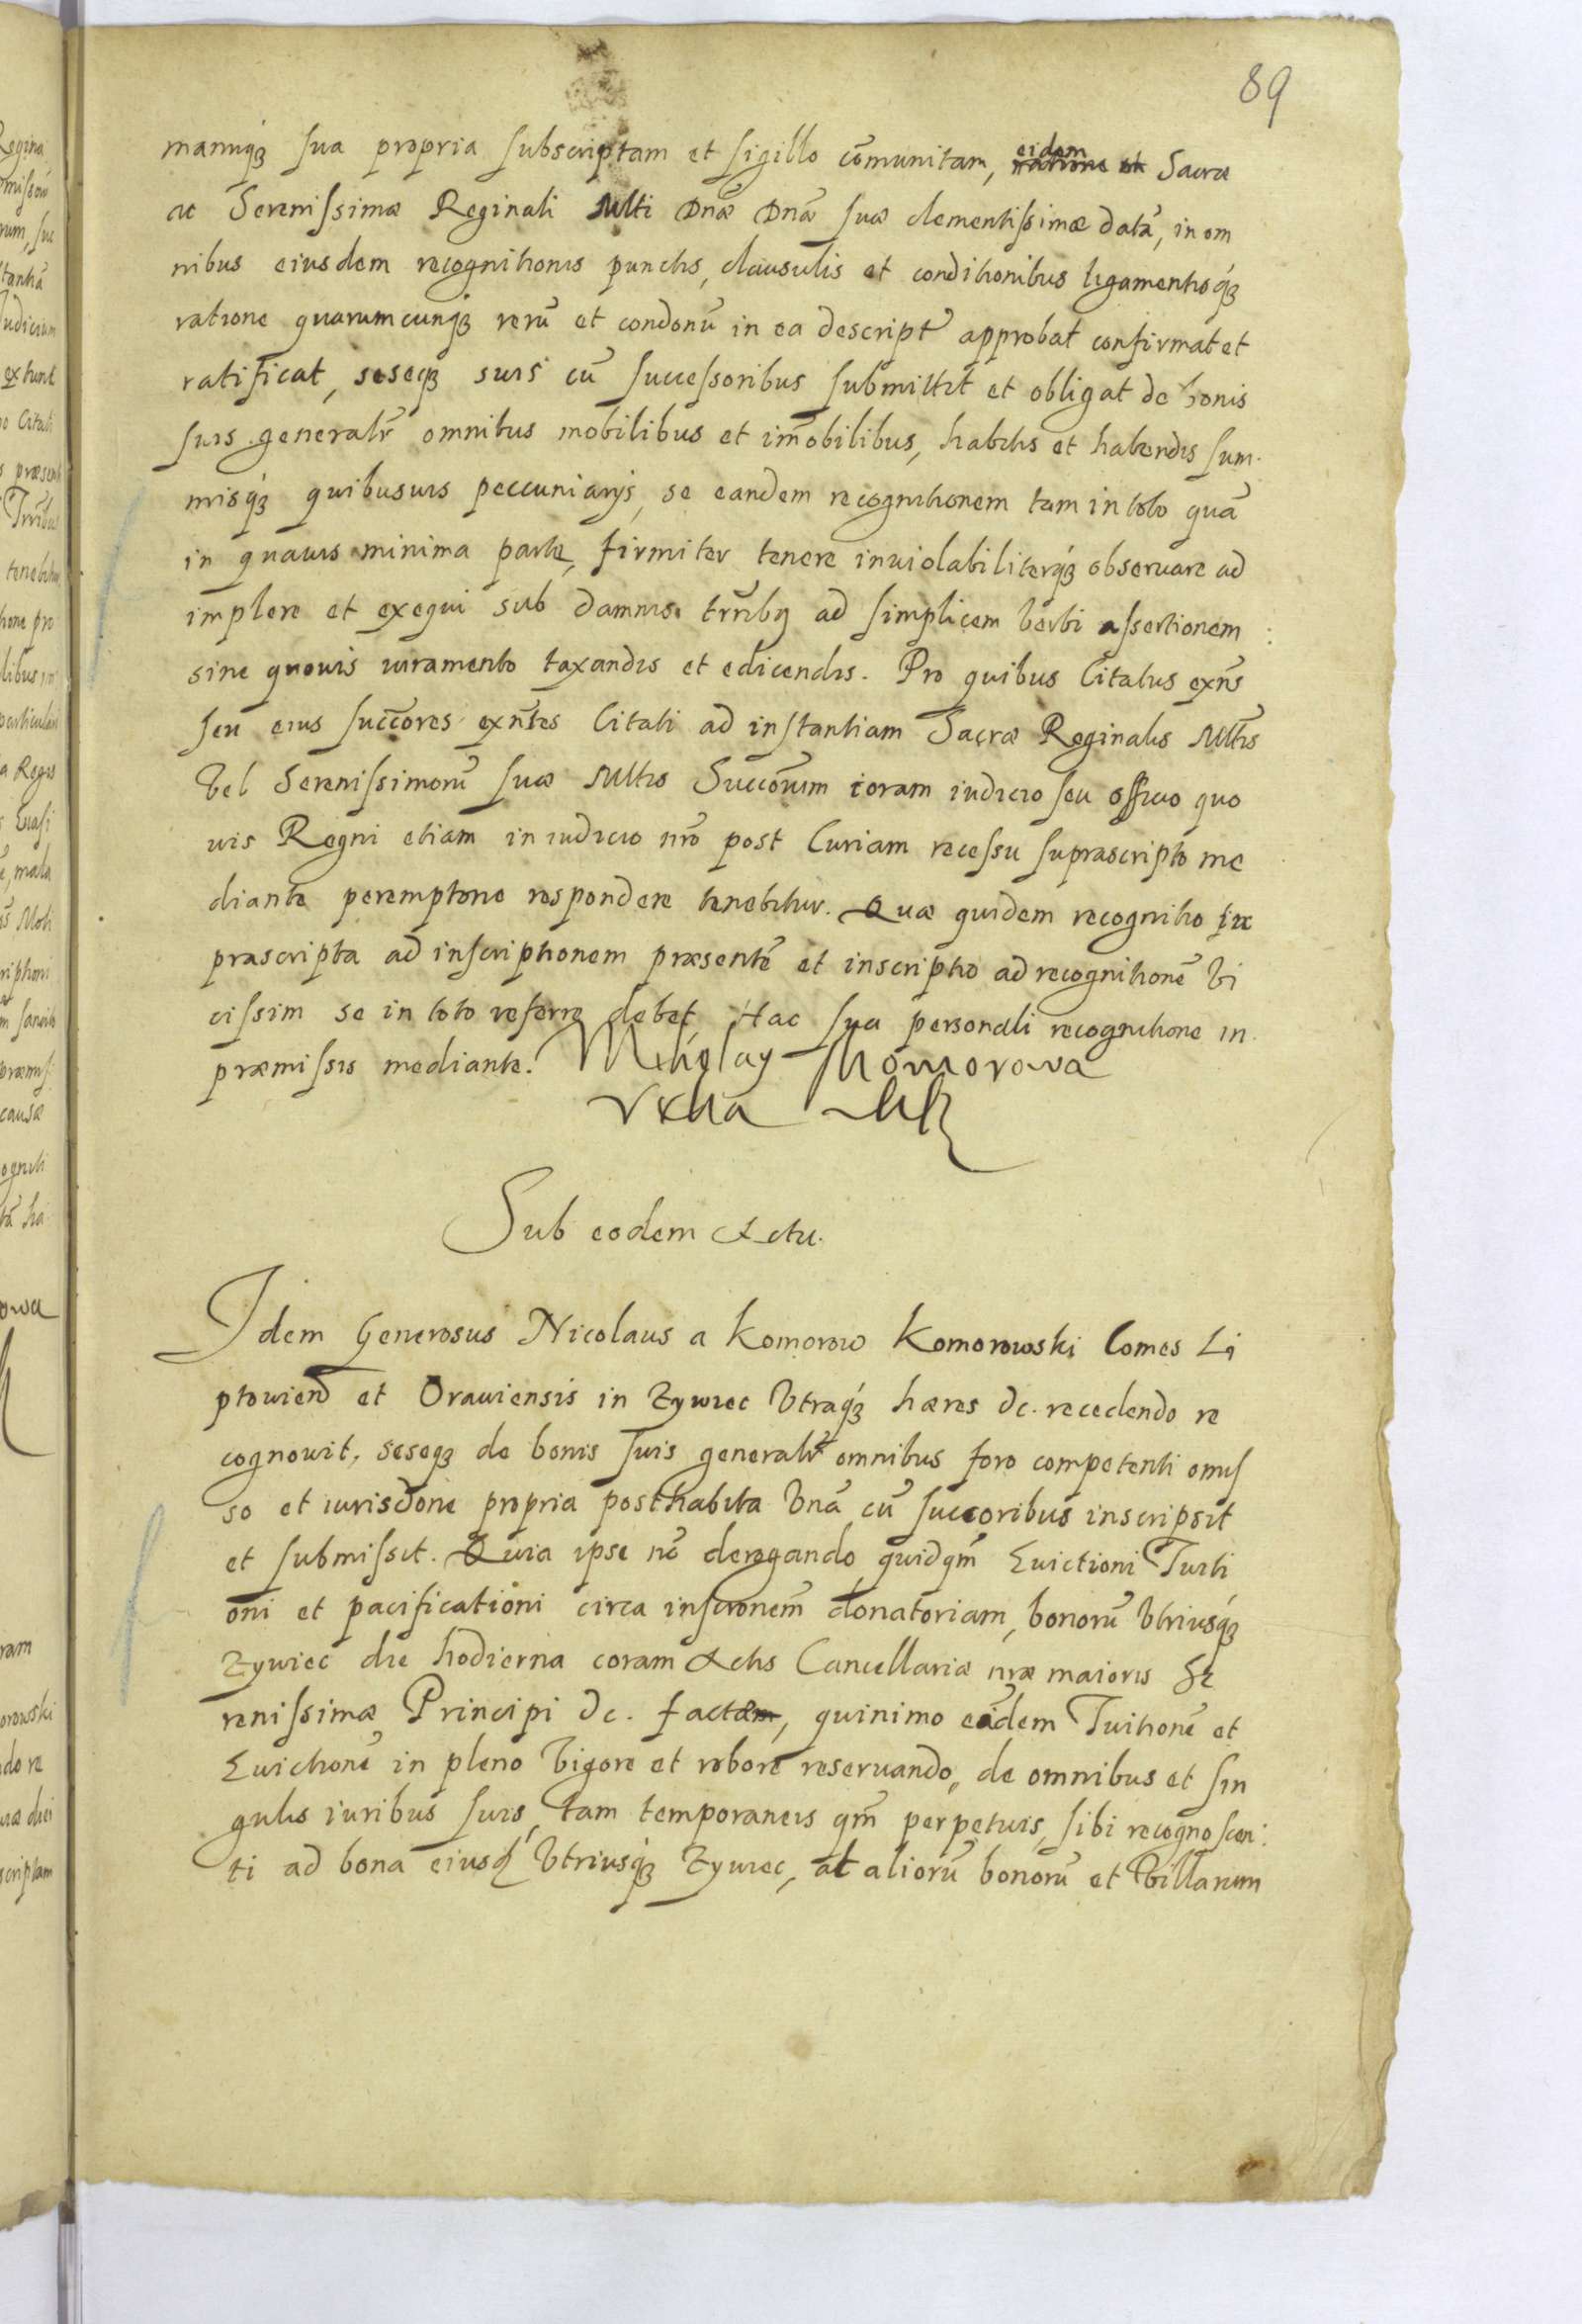 89
manuq́ꝫ sua propria subscriptam et sigillo cōmunitam, eidem Sacræ
ac Serenissimæ Reginali Mtti Dnæ Dnæ suæ clementissimæ datā, in om
nibus eiusdem recognitionis punctis, clausulis et conditionibus ligamentisq́ꝫ
ratione quarumcunqꝫ rerū et condonū in ea descript̃ approbat confirmat et
ratificat, seseqꝫ suis cū successoribus submittit et obligat de bonis
suis generalr̃ omnibus mobilibus et im̄obilibus, habitis et habendis sum
misq́ꝫ quibusuis peccuniarijs, se eandem recognitionem tam in toto quā
in quauis minima parte, firmiter tenere inuiolabiliterq́ꝫ obseruare ad
implere et exequi sub damnis trr̃ibꝫ ad simplicem verbi assertionem
sine quouis iuramento taxandis et edicendis. Pro quibus Citatus exñs
seu eius succ̄ores exñtes Citati ad instantiam Sacræ Reginalis Mttis
Vel Serenissimorū suæ Mttis Succorum coram iudicio seu officio quo
uis Regni etiam in iudicio nrō post Curiam recessu suprascripto me
diante peremptorie respondere tenebitur. Quæ quidem recognitio
præscripta ad inscriptionem præsentē et inscriptio ad recognitionē vi
cissim se in toto referre debet Hac sua personali recognitione in
præmissis mediante. Mikolay Komorowa
Sub eodem Actu.
Idem Generosus Nicolaus a Komorow Komorowski Comes Li
ptowien̄ et Orauiensis in Zywiec Vtraq́ꝫ hæres &c. recedendo re
cognowit, seseqꝫ de bonis suis generalr̃ omnibus foro competenti omis
so et iurisdōne propria posthabita Vnā cū succoribus inscripsit
et submissit. Quia ipse nō derogando quidqm̄ Euictioni Tuiti
oni et pacificationi circa inscrīonem donatoriam, bonorū Vtriusq́ꝫ
Zywiec die hodierna coram Actis Cancellariæ nræ maioris Se
renissimæ Principi &c. factæ, quinimo eādem Tuitionē et
Euictionē in pleno Vigore et robore reseruando, de omnibus et sin
gulis iuribus suis, tam temporaneis qm̄ perpetuis, sibi recognoscen
ti ad bona eiusd́ Vtriusq́ꝫ Zywiec, at aliorū bonorū et Villarum